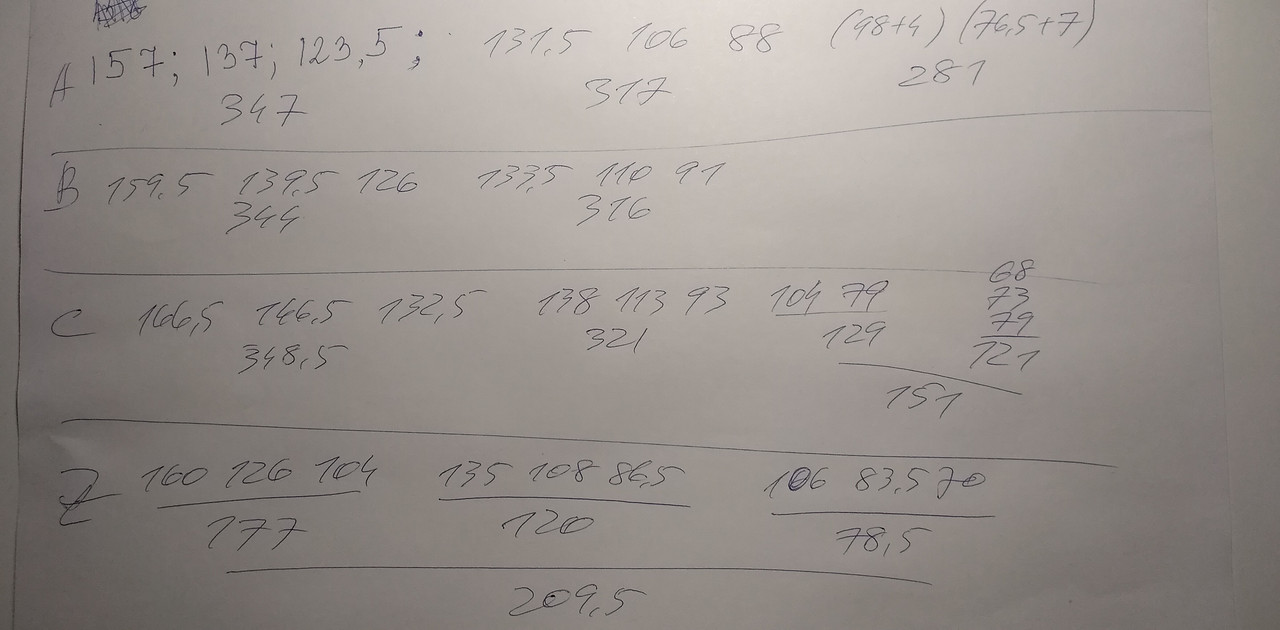 A 157; 137; 123,5; 131,5 106 88 (98+4) (76,5+7)
347 317 281
B 159,5 139,5 126 133,5 110 91
344 316
C 166,5 146,5 132,5 138 113 93 104 79 68
348,5 321 129 73
79
121
151
Z 160 126 104 135 108 86,5 106 83,5 70
177 120 78,5
209,5